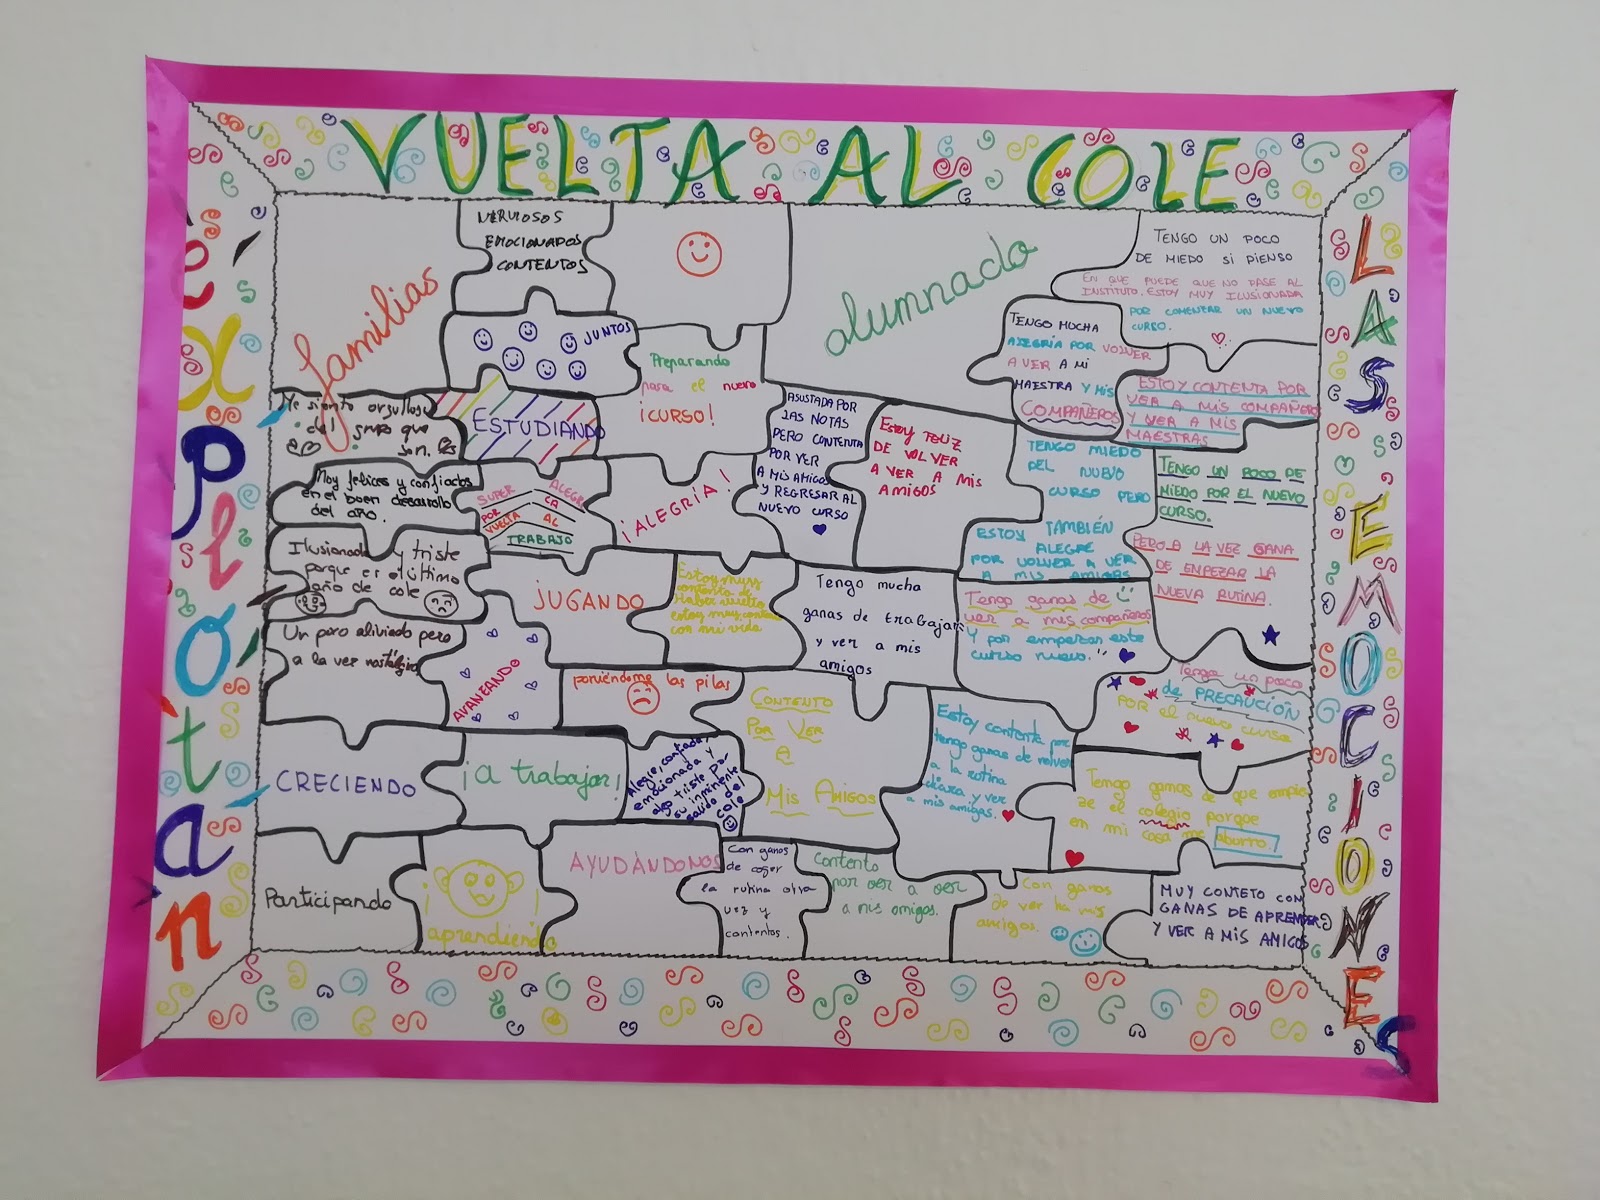 VUELTA AL COLE
éXPlótan
LAS EMOCIONES
familias
NERVIOSOS
EMOCIONADOS
CONTENTOS
JUNTOS
Preparando
para el nuevo
¡CURSO!
Me siento orgulloso
del grupo que
son.
ESTUDIANDO
Muy felices y confiados
en el buen desarrollo
del año.
SUPER ALEGRE
POR LA
VUELTA AL
TRABAJO
¡ALEGRÍA!
Ilusionada y triste
porque es el último
año de cole
JUGANDO
Estoy muy
contenta de
haber vuelto
estoy muy
con mi vida
Un poco aliviado pero
a la vez nostálgico
AVANZANDO
poniéndome las pilas
CRECIENDO
¡A trabajar!
Alegre, contada,
emocionada y
algo triste por
su inminente
salida del
cole
Participando
¡ !
aprendiendo
AYUDÁNDONOS
alumnado
TENGO UN POCO
DE MIEDO SI PIENSO
EN QUE PUEDE QUE NO PASE AL
INSTITUTO. ESTOY MUY ILUSIONADA
POR COMENZAR UN NUEVO
CURSO.
TENGO MUCHA
ALEGRÍA POR VOLVER
A VER A MI
MAESTRA Y MIS
COMPAÑEROS
ESTOY CONTENTA POR
VER A MIS COMPAÑERO
Y VER A MIS
MAESTRAS
ASUSTADA POR
LAS NOTAS
PERO CONTENTA
POR VER
A MIS AMIGOS
Y REGRESAR AL
NUEVO CURSO
Estoy FELIZ
DE VOLVER
A VER A MIS
AMIGOS
TENGO MIEDO
DEL NUEVO
CURSO PERO
ESTOY TAMBIÉN
ALEGRE
POR VOLVER A VER
A MIS AMIGAS
TENGO UN POCO DE
MIEDO POR EL NUEVO
CURSO.
PERO A LA VEZ GANA
DE EMPEZAR LA
NUEVA RUTINA.
Tengo mucha
ganas de trabajar
y ver a mis
amigos
Tengo ganas de
ver a mis compañeros
Y por empezar este
curso nuevo.
Tengo un poco
de PRECAUCIÓN
POR el nuevo curso
CONTENTO
POR VER
A
MIS AMIGOS
Estoy contenta por
tengo ganas de volver
a la rutina
diara y ver
a mis amigas.
Tengo ganas de que empie
ze el colegio porque
en mi casa me aburro!
Con ganas
de coger
la rutina otra
vez y
contentos.
Contento
por ver a ver
a mis amigos.
Con ganas
de ver ha mis
amigos.
MUY CONTETO CON
GANAS DE APRENDER
Y VER A MIS AMIGOS